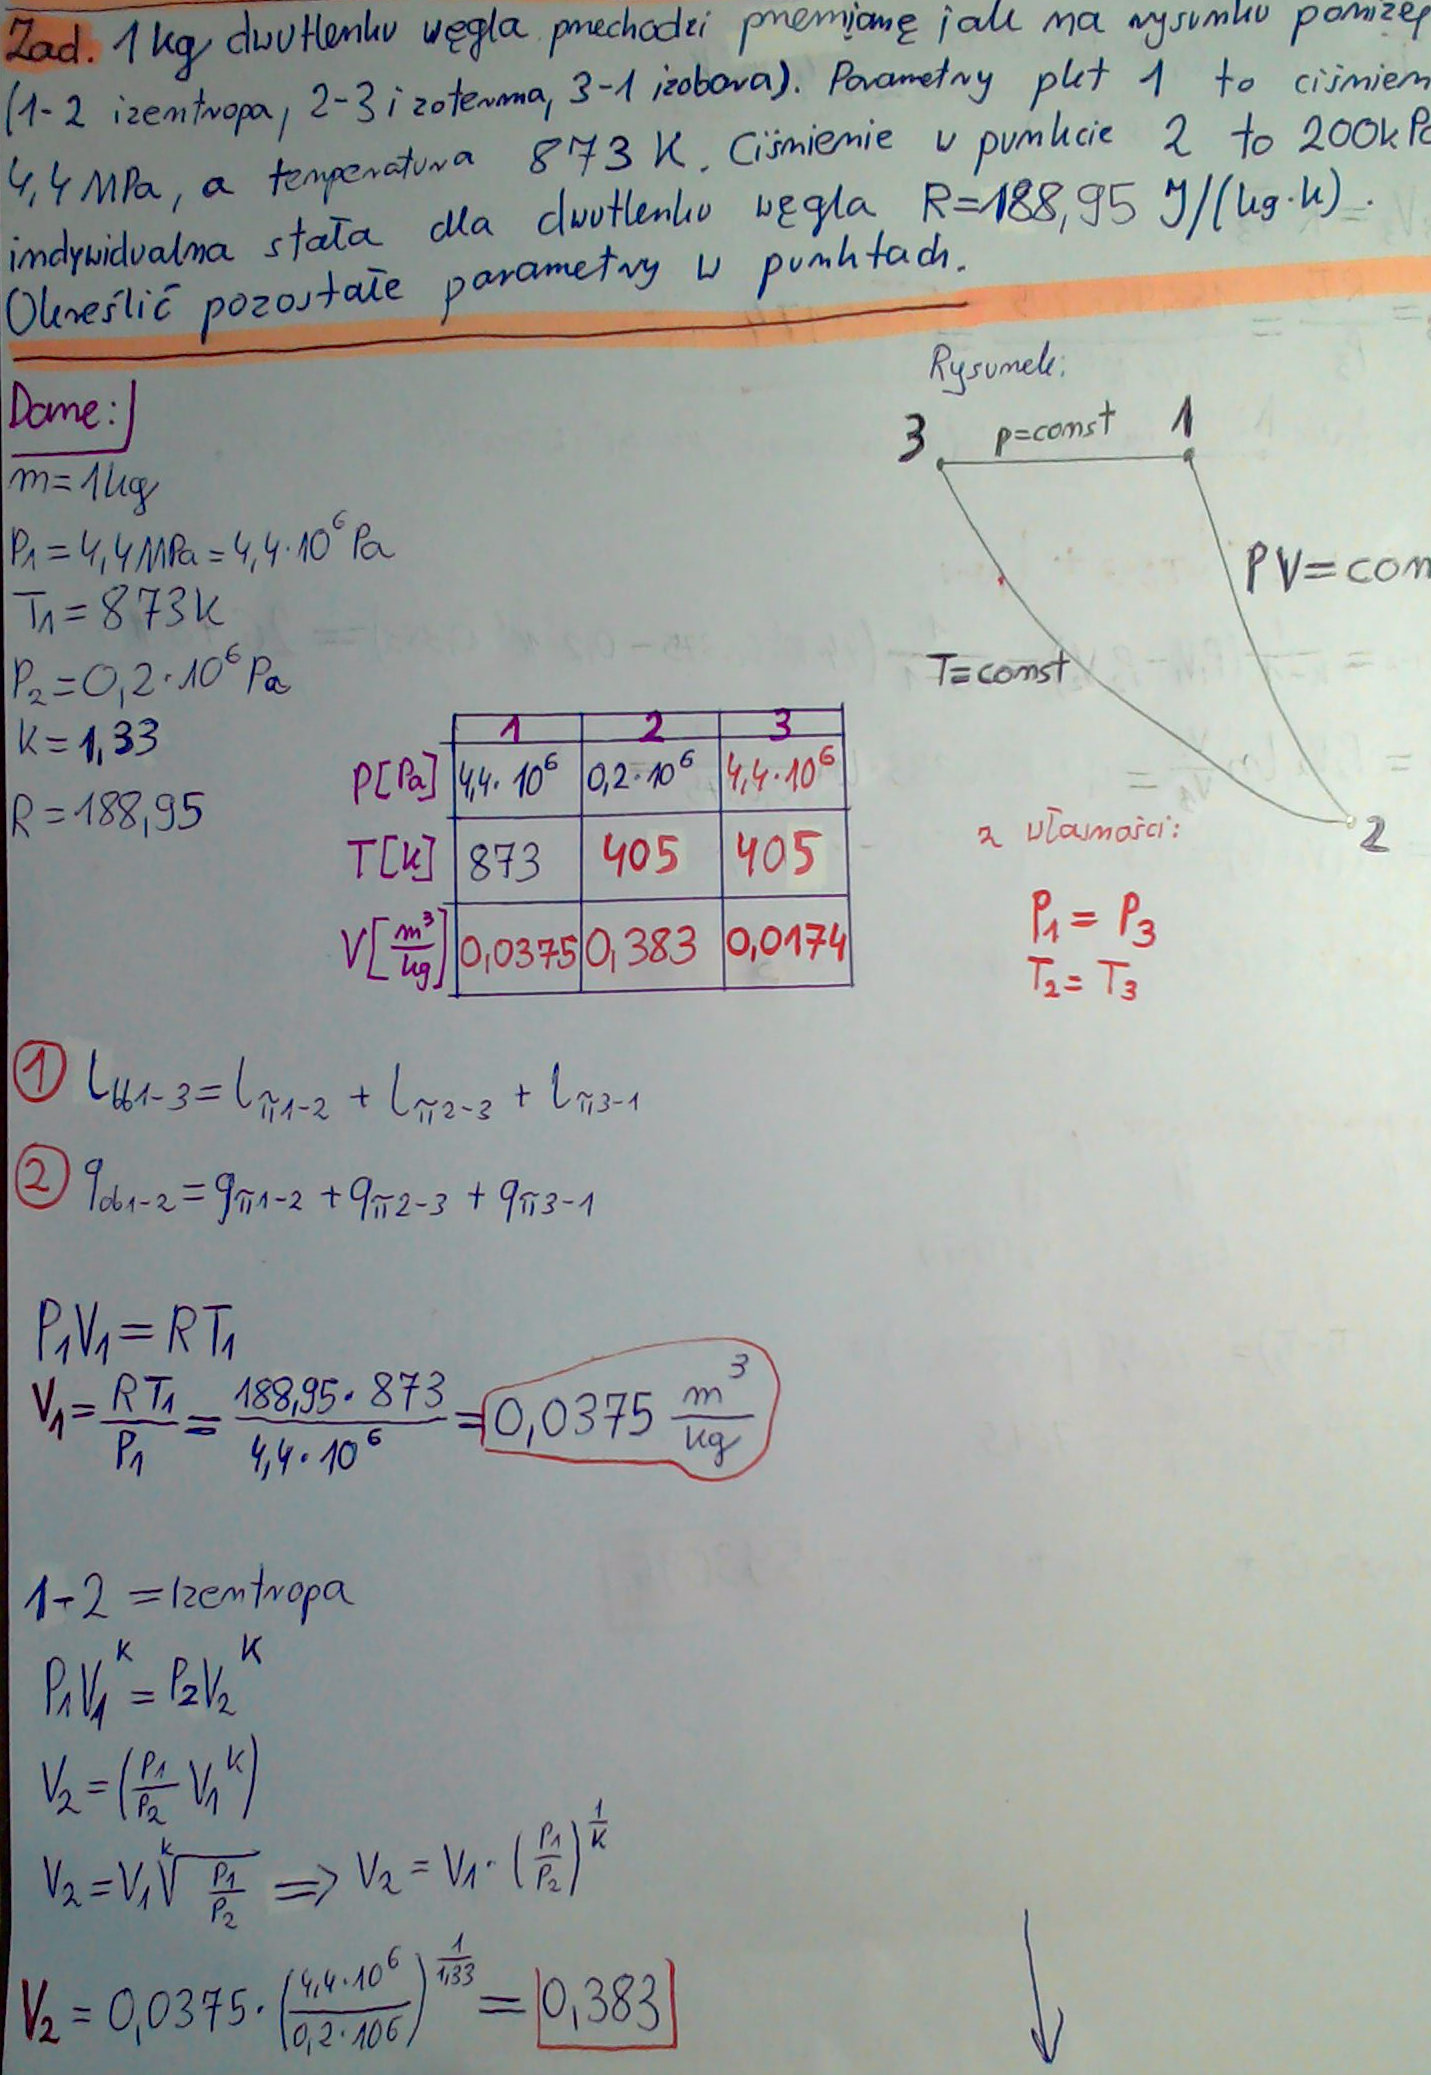 Zad. 1 kg dwutlenku węgla przechodzi przemianę jak na rysunku poniżej
(1-2 izentropa, 2-3 izoterma, 3-1 izobara). Parametry pkt 1 to ciśnien
4,4 MPa, a temperatura 873 K. Ciśnienie w punkcie 2 to 200kPa
indywidualna stała dla dwutlenku węgla R=188,95 J/(kg·k).
Określić pozostałe parametry w punktach.
Rysunek:
3 p=const 1
PV=con
T=const
2
Dane:
m=1kg
P1=4,4MPa=4,4·10^6 Pa
T1=873K
P2=0,2·10^6 Pa
K=1,33
R=188,95
1 2 3
P[Pa] 4,4·10^6 0,2·10^6 4,4·10^6
T[K] 873 405 405
V[m^3/kg] 0,0375 0,383 0,0174
z własności:
P1=P3
T2=T3
① Lob1-3=Lπ1-2 + Lπ2-3 + Lπ3-1
② qob1-2=qπ1-2 + qπ2-3 + qπ3-1
P1V1=RT1
V1=RT1/P1=188,95·873/4,4·10^6=0,0375 m^3/kg
1-2 =Izentropa
P1V1^K=P2V2^K
V2=(P1/P2 V1^K)
V2=V1 ^k√(P1/P2) ⇒ V2=V1·(P1/P2)^(1/K)
V2=0,0375·(4,4·10^6/0,2·10^6)^(1/1,33)=0,383